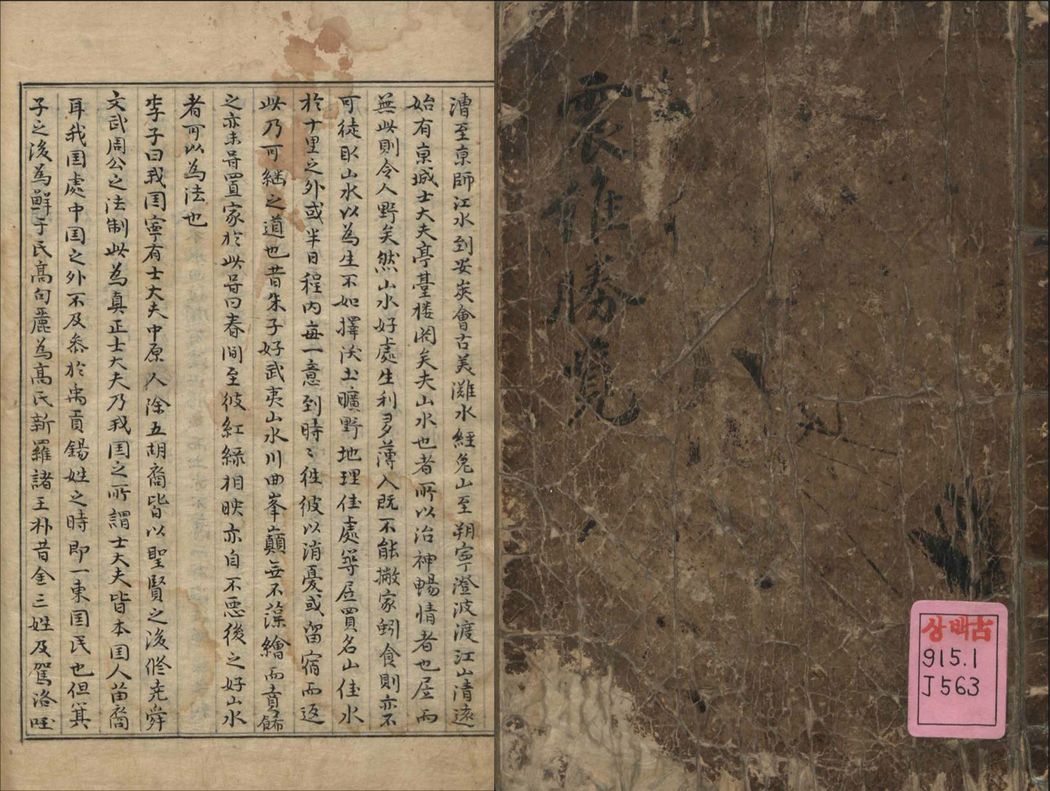 震維勝覽
상백古
915.1
J563
漕至京師江水到安炭會古美灘水經兎山至朔寧澄波渡江山清遠
始有京城士大夫亭臺楼閣矣夫山水也者所以治神暢情者也居而
無此則令人野矣然山水好處生利多薄人既不能撇家蚓食則亦不
可徒取山水以為生不如擇沃土曠野地理佳處築居買名山佳水
於十里之外或半日程内每一意到時〻徃彼以消憂或留宿而返
此乃可継之道也昔朱子好武夷山水川曲峯巔無不藻繪而賁餙
之亦未甞置家於此甞曰春間至彼紅綠相映亦自不惡後之好山水
者可以為法也
李子曰我国寧有士大夫中原人除五胡裔皆以聖賢之後修堯舜
文武周公之法制此為真正士大夫乃我国之所謂士大夫皆本国人苗裔
耳我国處中国之外不及叅於禹貢錫姓之時即一東国民也但箕
子之後為鮮于氏高句麗為高氏新羅諸王朴昔金三姓及駕洛国